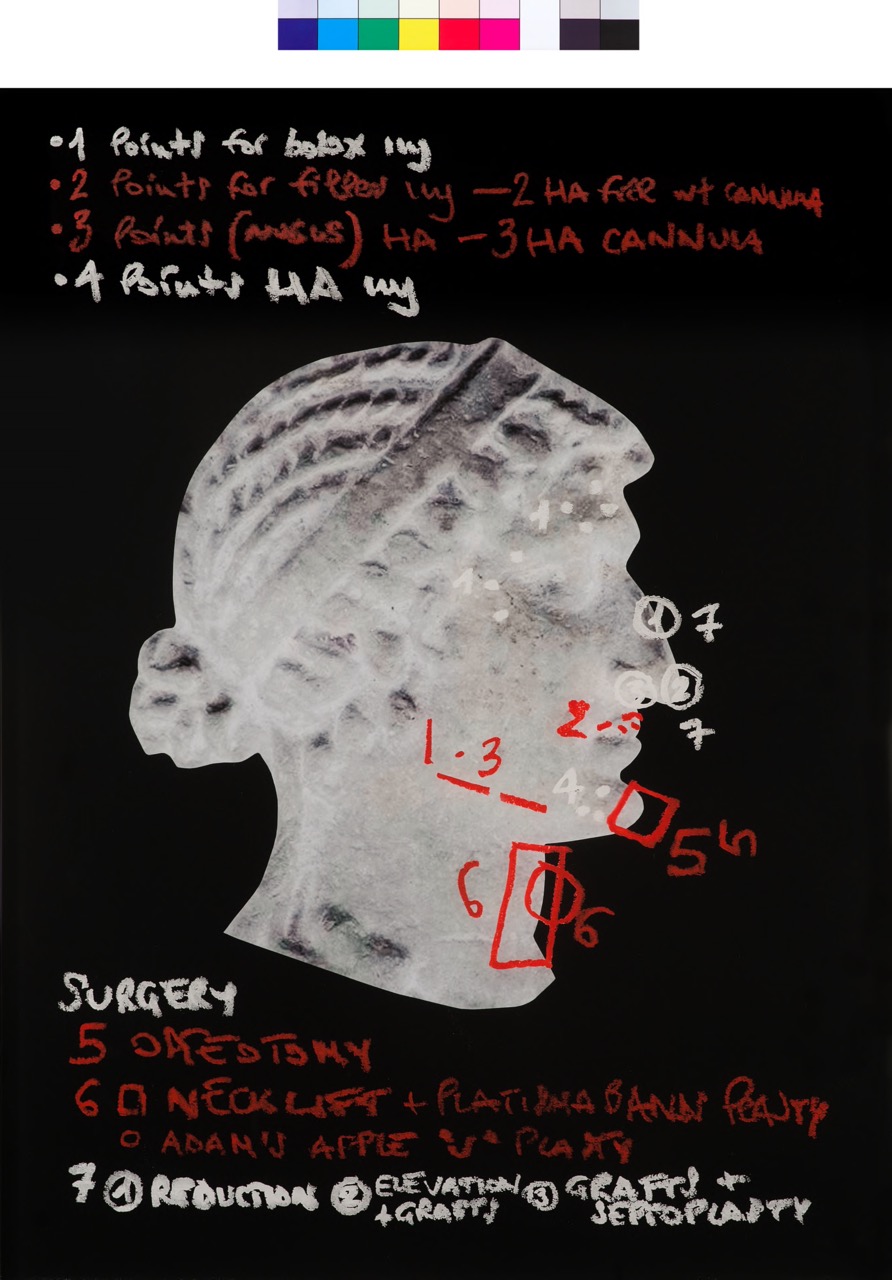 •1 Points for botox inj
•2 Points for filler inj — 2 HA fill wt CANNULA
•3 Points (ANGLUS) HA — 3 HA CANNULA
•4 Points HA inj
1
1
1 7
3 2
2
7
1 • 3
4
5
6
6
SURGERY
5 OSTEOTOMY
6 □ NECK LIFT + PLATISMA BANN PLASTY
○ ADAM'S APPLE "V" PLASTY
7 ① REDUCTION ② ELEVATION + GRAFTS ③ GRAFTS + SEPTOPLASTY